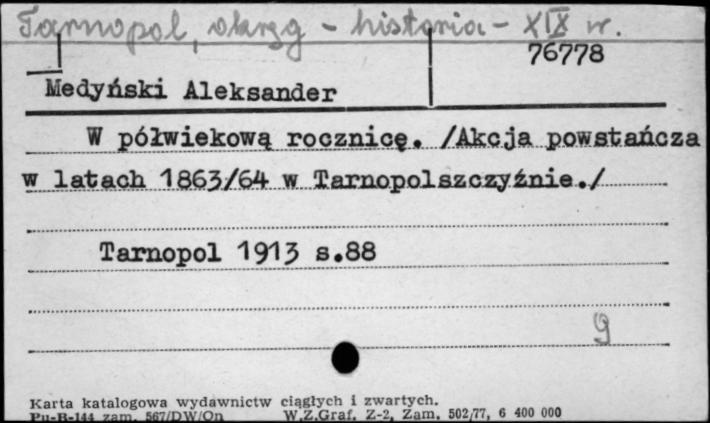 Tarnopol, okręg - historia - XIX w.
76778
Medyński Aleksander
W półwiekową rocznicę. /Akcja powstańcza
w latach 1863/64 w Tarnopolszczyźnie./
Tarnopol 1913 s.88
g
Karta katalogowa wydawnictw ciągłych i zwartych.
Pu-B-144 zam. 567/DW/On W.Z.Graf. Z-2, Zam. 502/77, 6 400 000